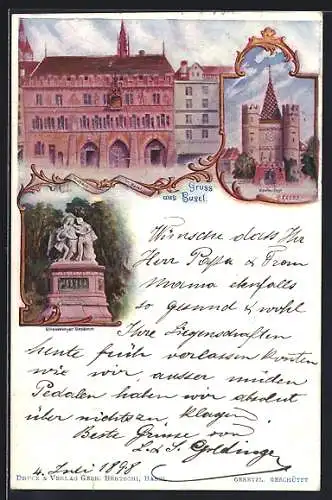 Gruss
aus Basel.
Spalenthor
Strassburger Denkmal
Wünsche dass Ihr
Herr Pappa & Frau
Mama ebenfalls
so gesund & wohl
Ihre Liegenschaften
heute früh verlassen konnten
wie wir ausser müden
Pedalen haben wir absolut
über nichts zu klagen
Beste Grüsse von
L. & S. Goldinger
4. Juli 1898
DRUCK & VERLAG GEBR. BERTSCHI, BASEL
GESETZL. GESCHÜTZT